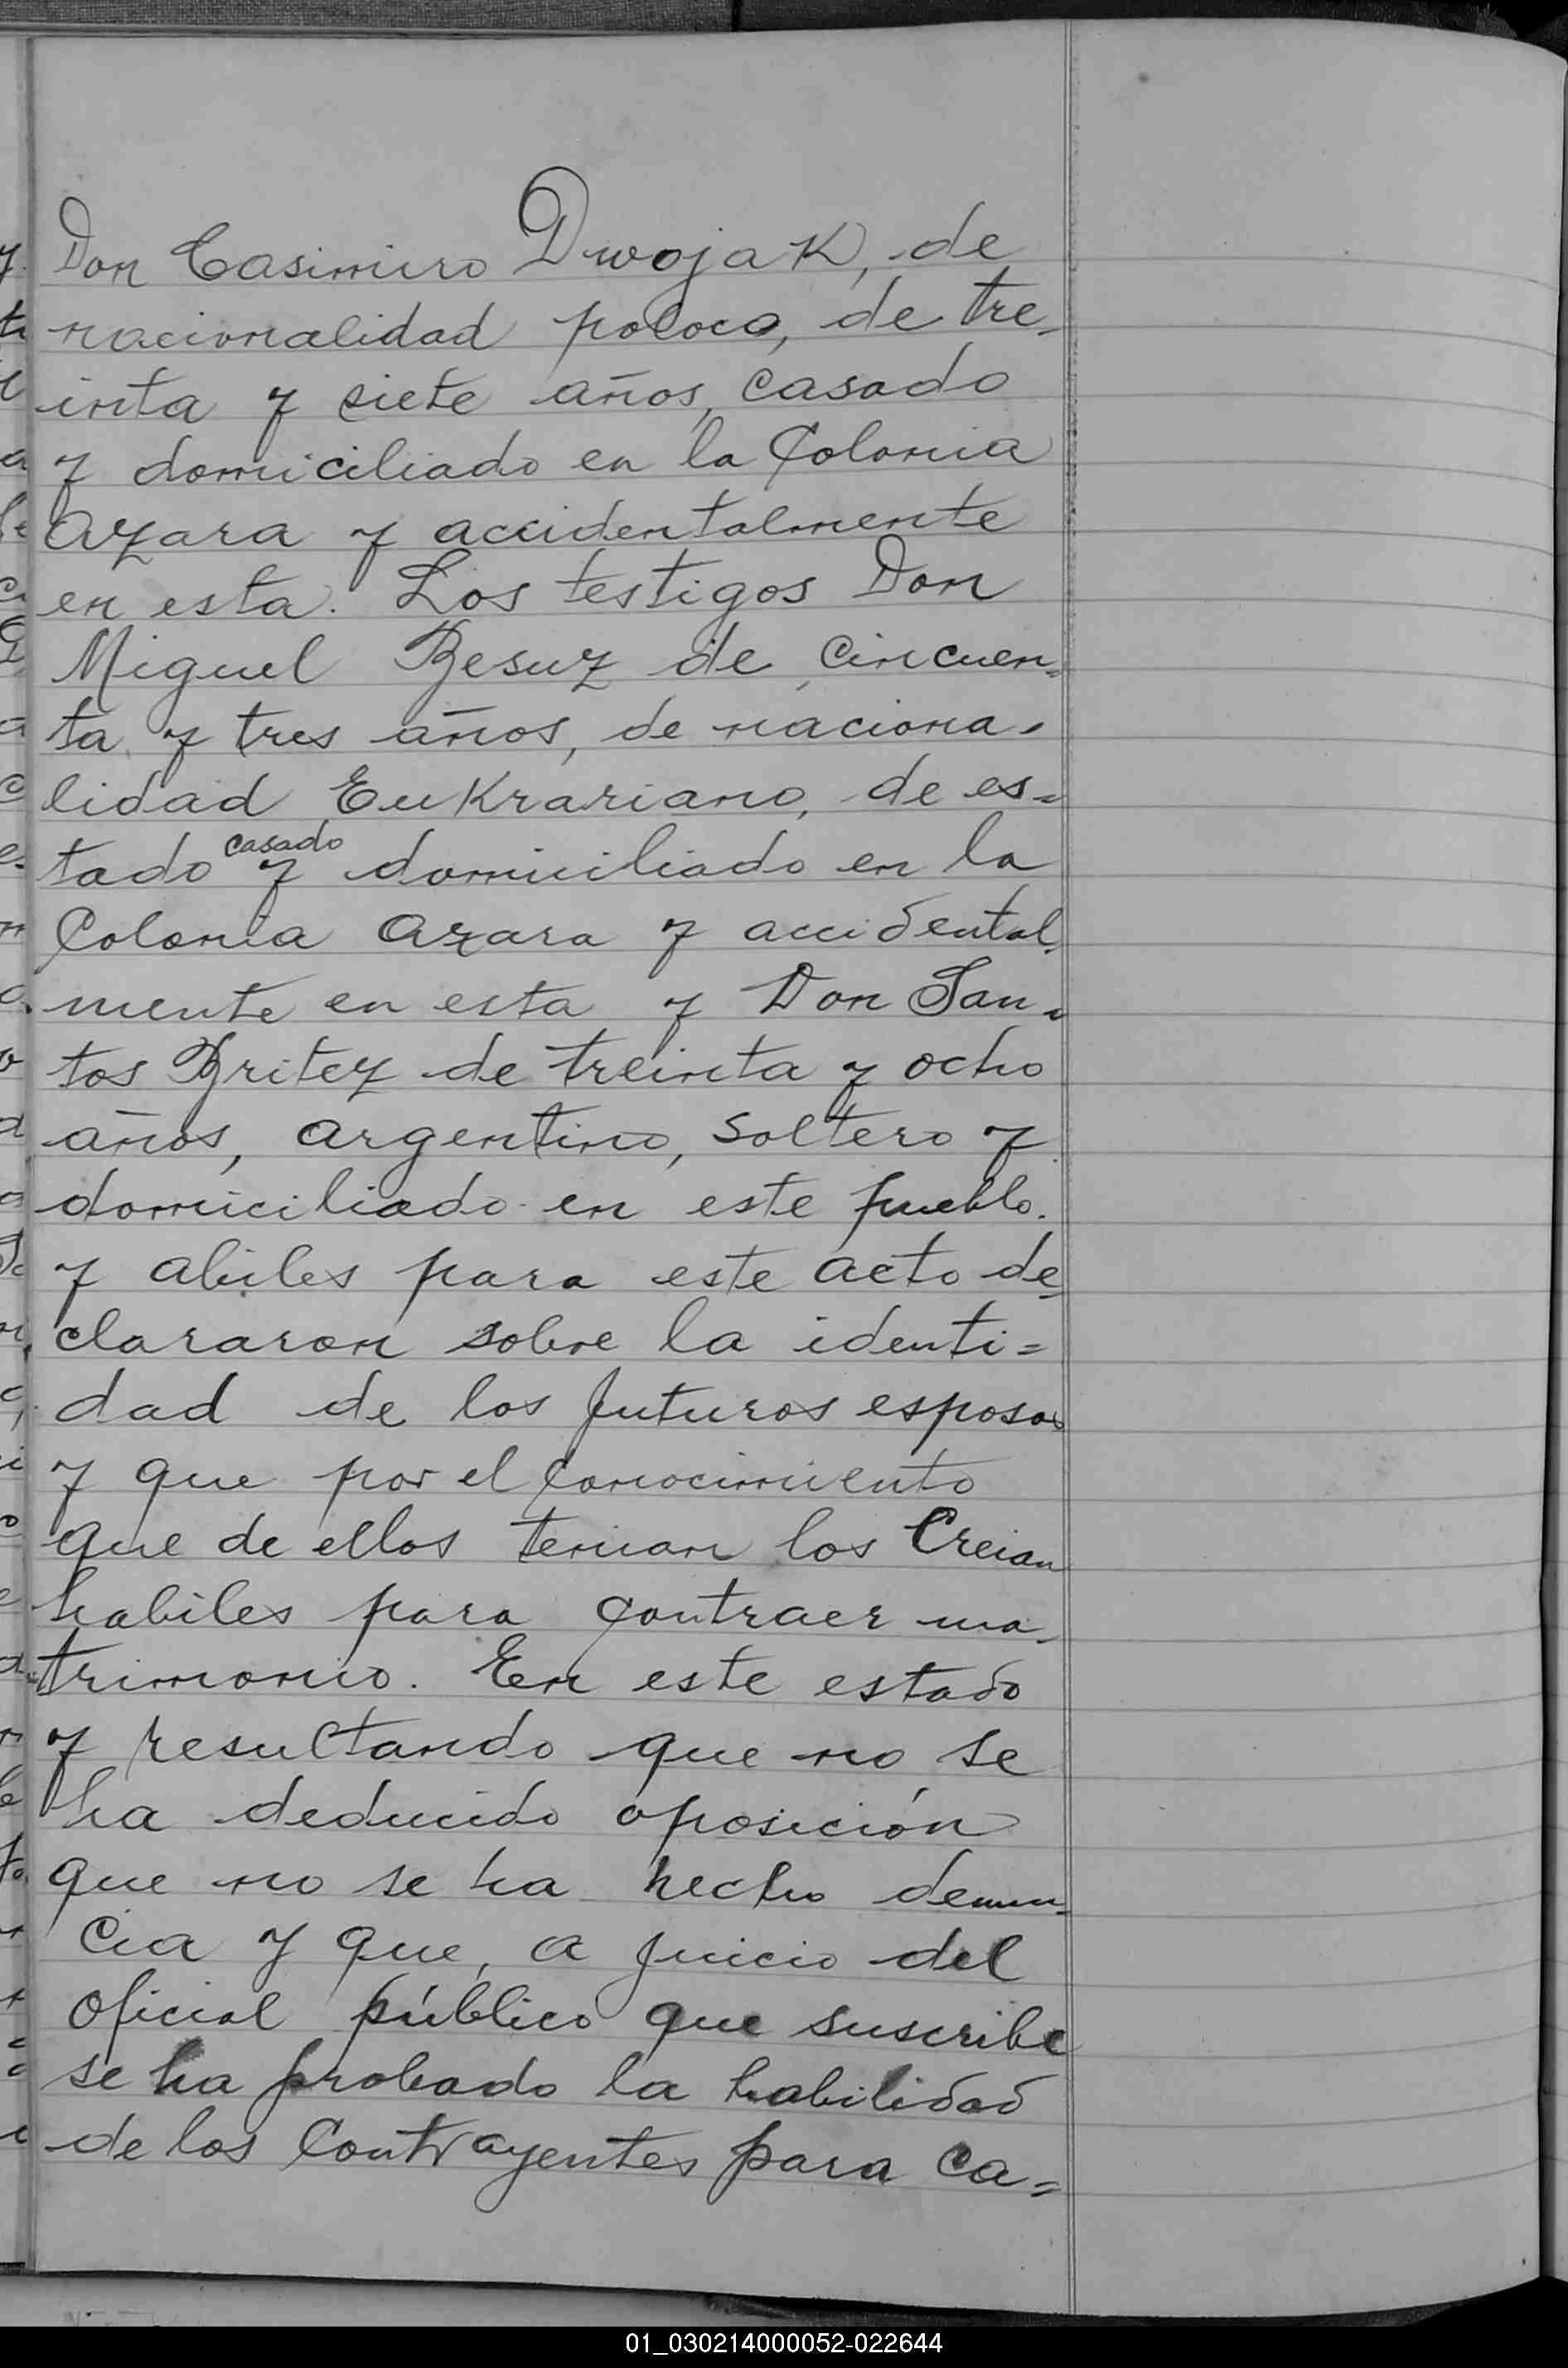 Don Casimiro Dwojak, de
nacionalidad poloca, de tre-
inta y siete años, casado
y domiciliado en la Colonia
Azara y accidentalmente
en esta. Los testigos Don
Miguel Besuz de cincuen=
ta y tres años, de naciona-
lidad Eukrariano, de es=
tado casado y domiciliado en la
Colonia Azara y accidental-
mente en esta y Don San-
tos Britez de treinta y ocho
años, argentino, soltero y
domiciliado en este pueblo.
y abiles para este acto de=
clararon sobre la identi=
dad de los futuros esposos
y que por el conocimiento
que de ellos tenian los creian
habiles para contraer ma-
trimonio. En este estado
y resultando que no se
ha deducido oposición
que no se ha hecho denun=
cia y que, a juicio del
oficial público que suscribe
se ha probado la habilidad
de los contrayentes para ca=
01_030214000052-022644